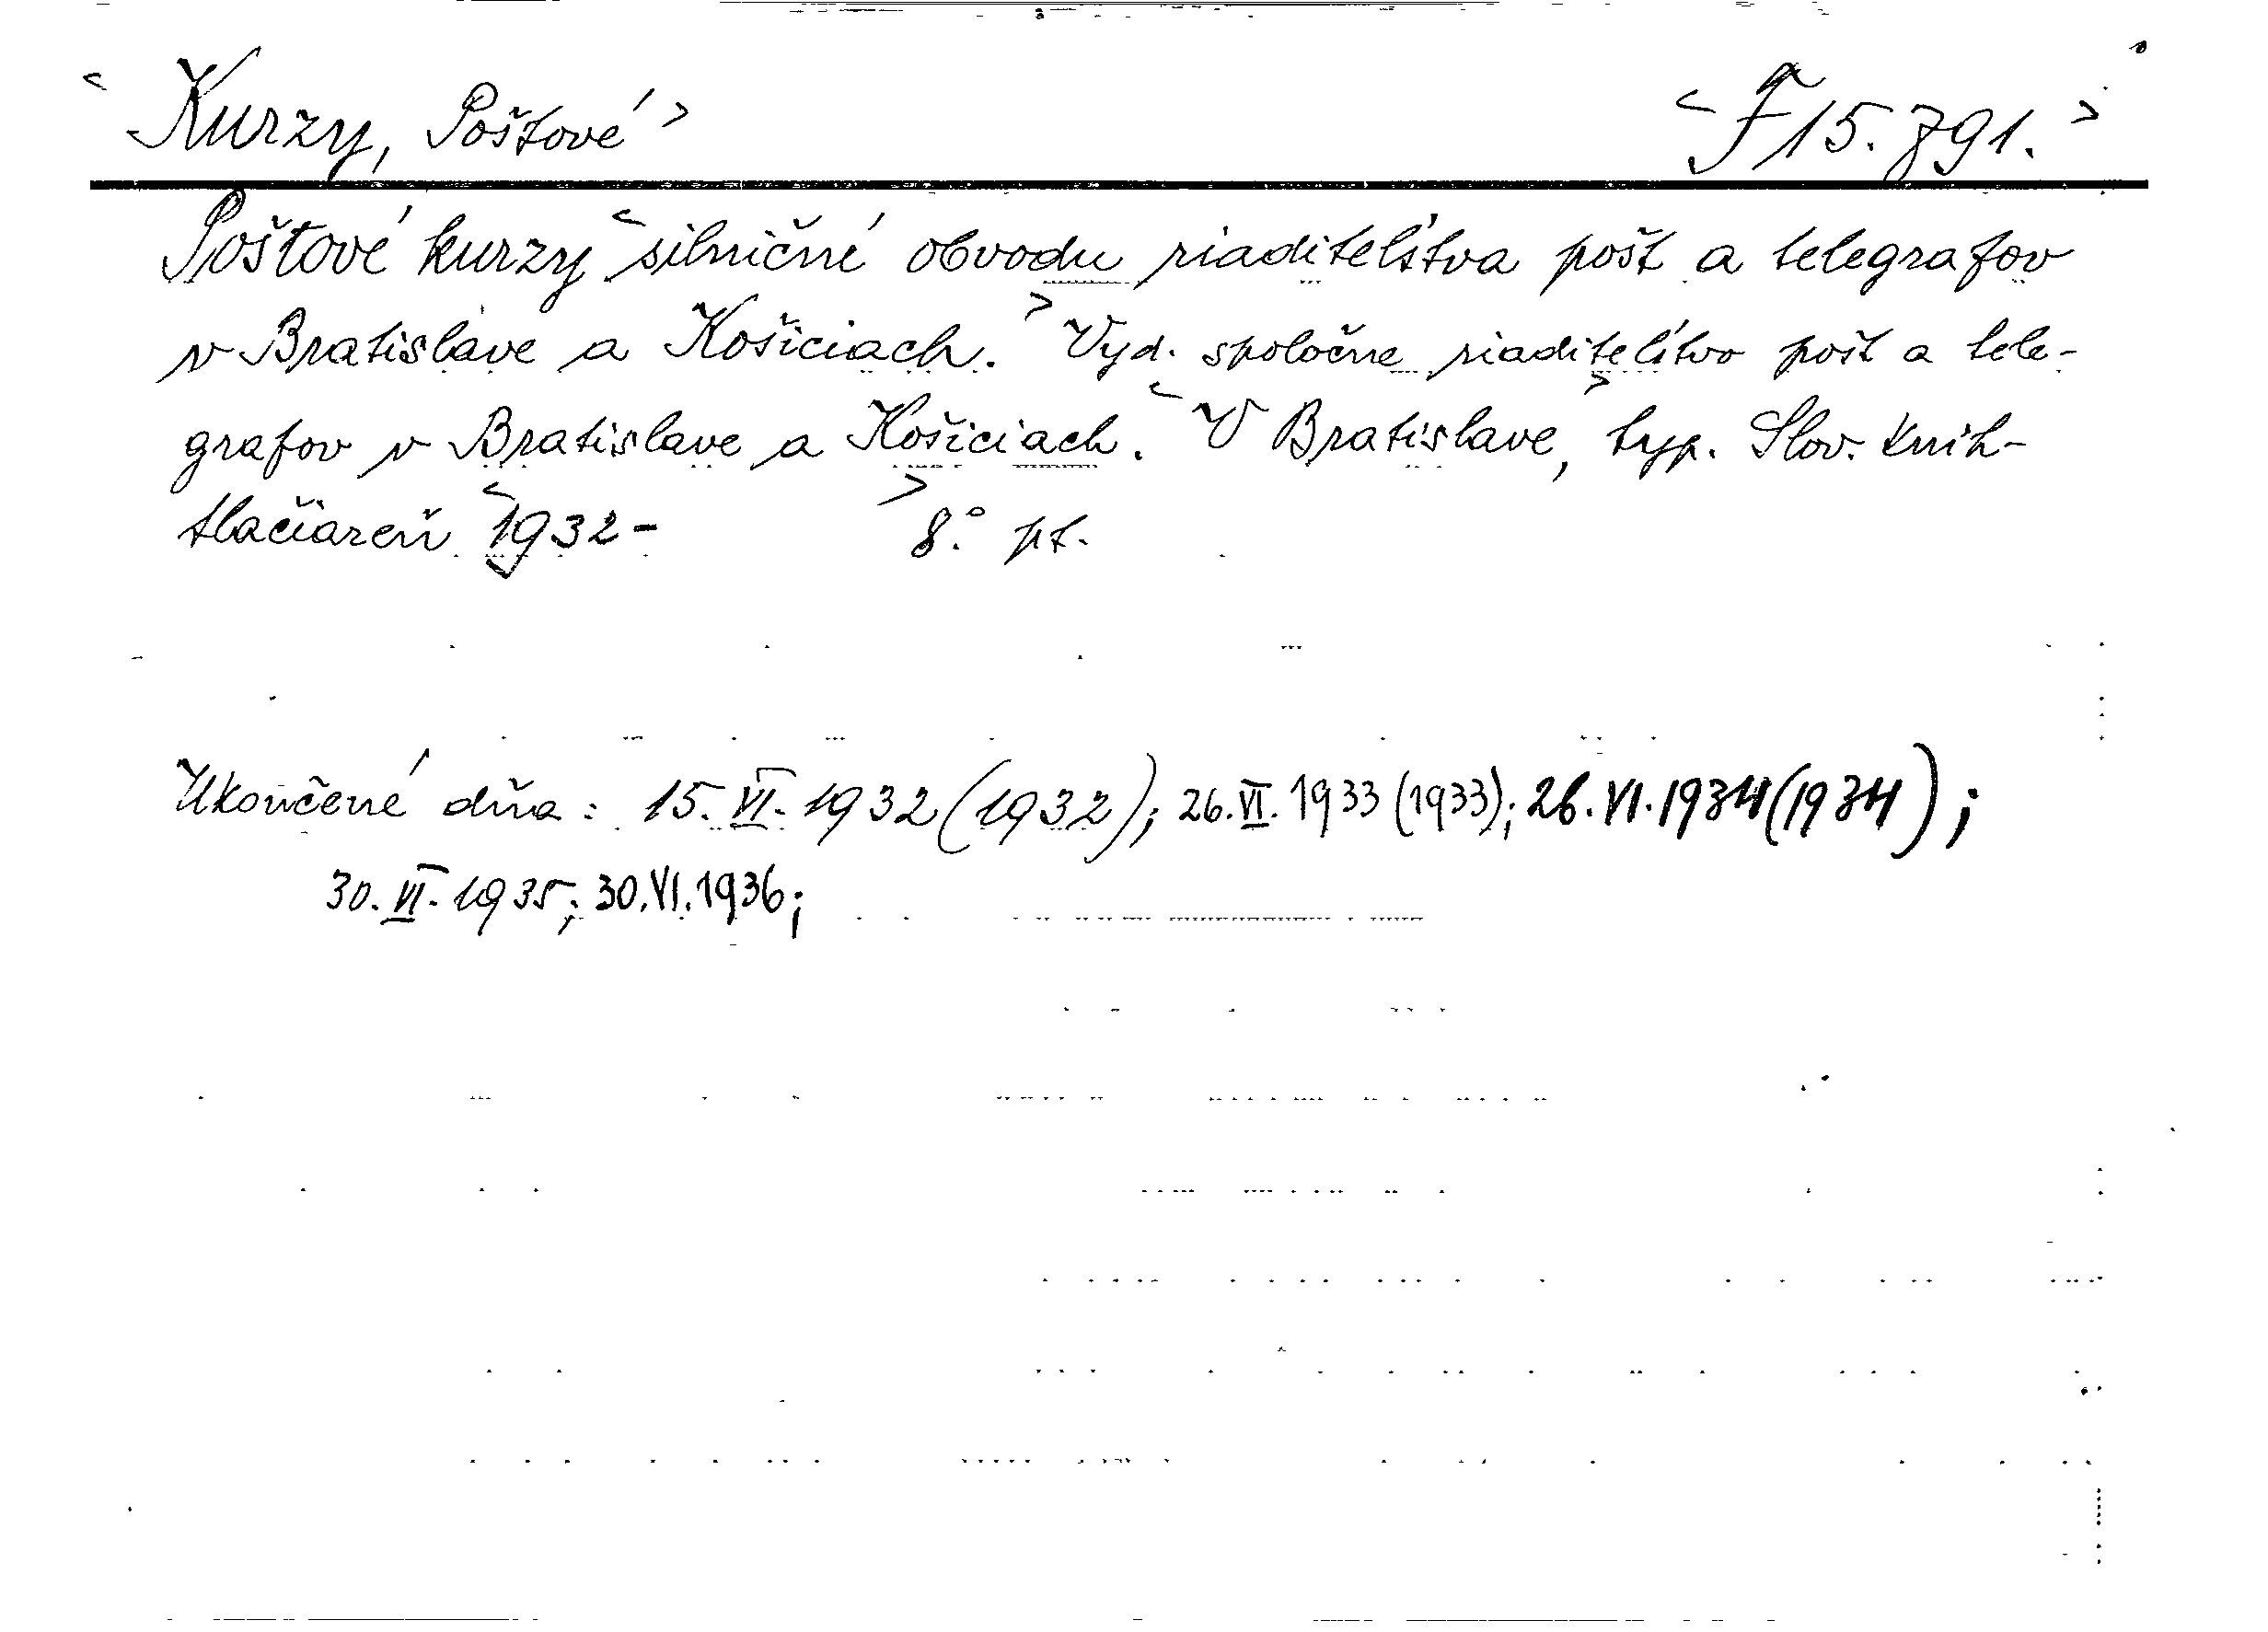 < Kurzy, Poštové > < F 15.791. >
Poštové kurzy < silničné obvodu riaditeľstva pošt a telegrafov
v Bratislave a Košiciach. > Vyd. spoločne riaditeľstvo pošt a tele-
grafov v Bratislave a Košiciach. < V Bratislave, > typ. Slov. knih-
tlačiareň < 1932- > 8° pt.
Ukončené dňa: 15. VI. 1932 (1932); 26. VI. 1933 (1933); 26. VI. 1934 (1934);
30. VI. 1935; 30. VI. 1936;